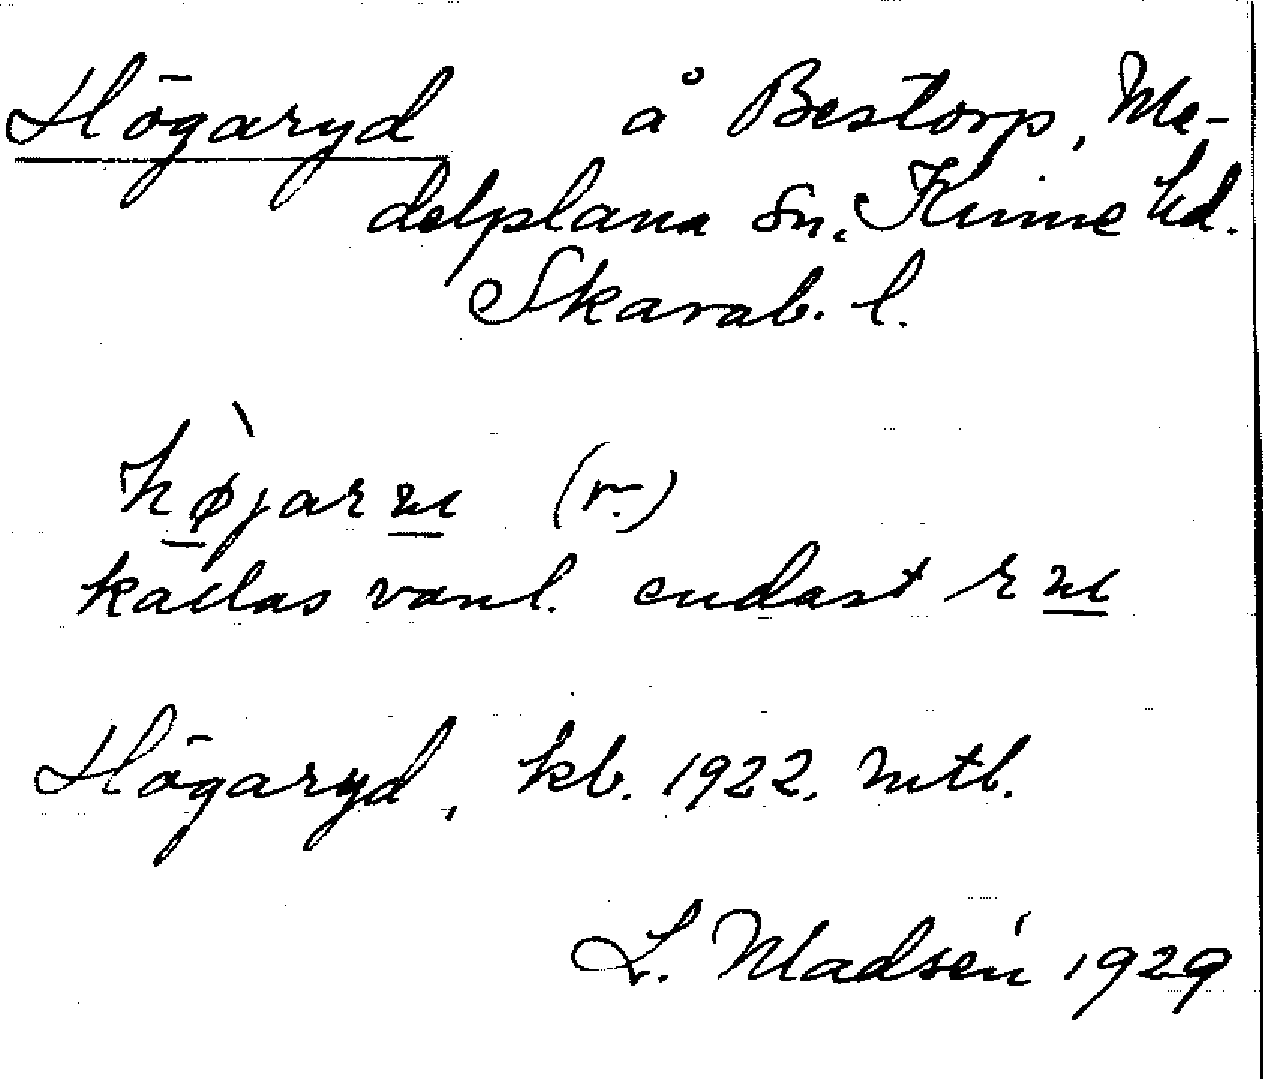 Högaryd å Bestorp, Me-
delplana sn. Kinne hd.
Skarab. l.
kallas vanl. endast
Högaryd, kb. 1922. mtl.
L. Madsén 1929